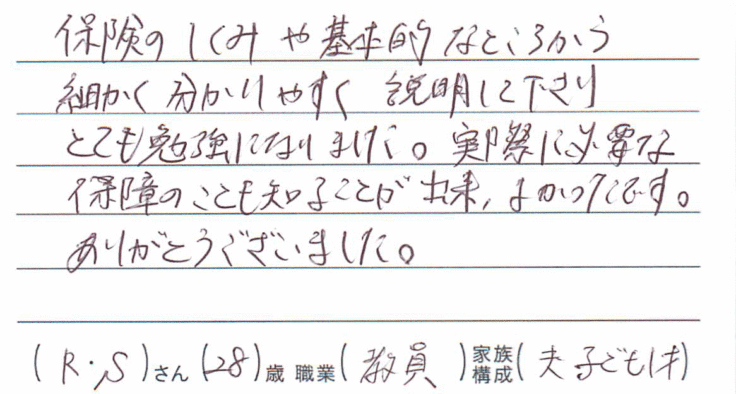 保険のしくみや基本的なところから
細かく分かりやすく説明して下さり
とても勉強になりました。実際に必要な
保障のことも知ることが出来、よかったです。
ありがとうございました。
(R・S)さん(28)歳 職業(教員)家族構成(夫 子ども1才)